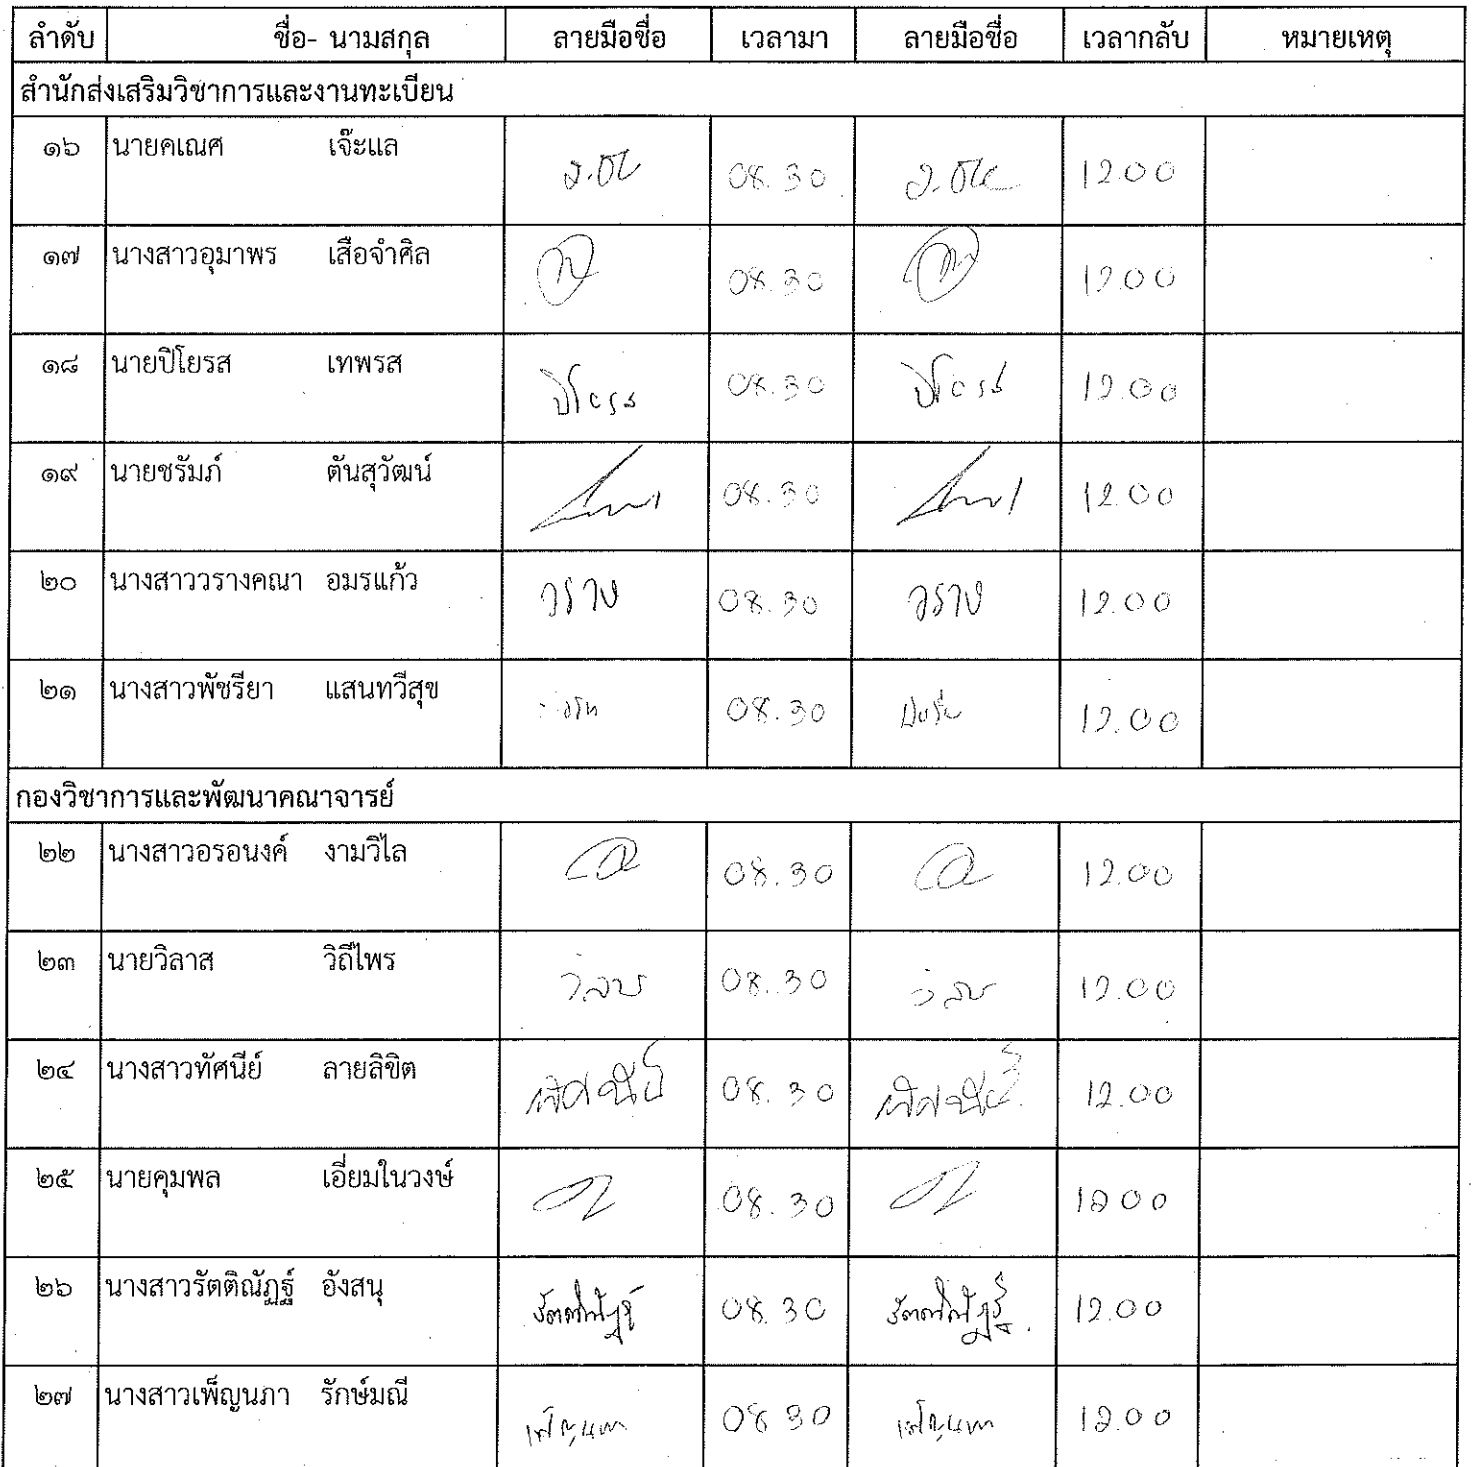 ลำดับ ชื่อ- นามสกุล ลายมือชื่อ เวลามา ลายมือชื่อ เวลากลับ หมายเหตุ
สำนักส่งเสริมวิชาการและงานทะเบียน
๑๖ นายคเณศ เจ๊ะแล 08.30 12.00
๑๗ นางสาวอุมาพร เสือจำศิล 08.30 12.00
๑๘ นายปิโยรส เทพรส ปิโยรส 08.30 ปิโยรส 12.00
๑๙ นายชรัมภ์ ตันสุวัฒน์ 08.30 12.00
๒๐ นางสาววรางคณา อมรแก้ว วราง 08.30 วราง 12.00
๒๑ นางสาวพัชรียา แสนทวีสุข 08.30 12.00
กองวิชาการและพัฒนาคณาจารย์
๒๒ นางสาวอรอนงค์ งามวิไล 08.30 12.00
๒๓ นายวิลาส วิถีไพร วิลาส 08.30 วิลาส 12.00
๒๔ นางสาวทัศนีย์ ลายลิขิต ทัศนีย์ 08.30 ทัศนีย์ 12.00
๒๕ นายคุมพล เอี่ยมในวงษ์ 08.30 12 00
๒๖ นางสาวรัตติณัฏฐ์ อังสนุ รัตติณัฏฐ์ 08.30 รัตติณัฏฐ์ 12.00
๒๗ นางสาวเพ็ญนภา รักษ์มณี เพ็ญนภา 08 30 เพ็ญนภา 12.00